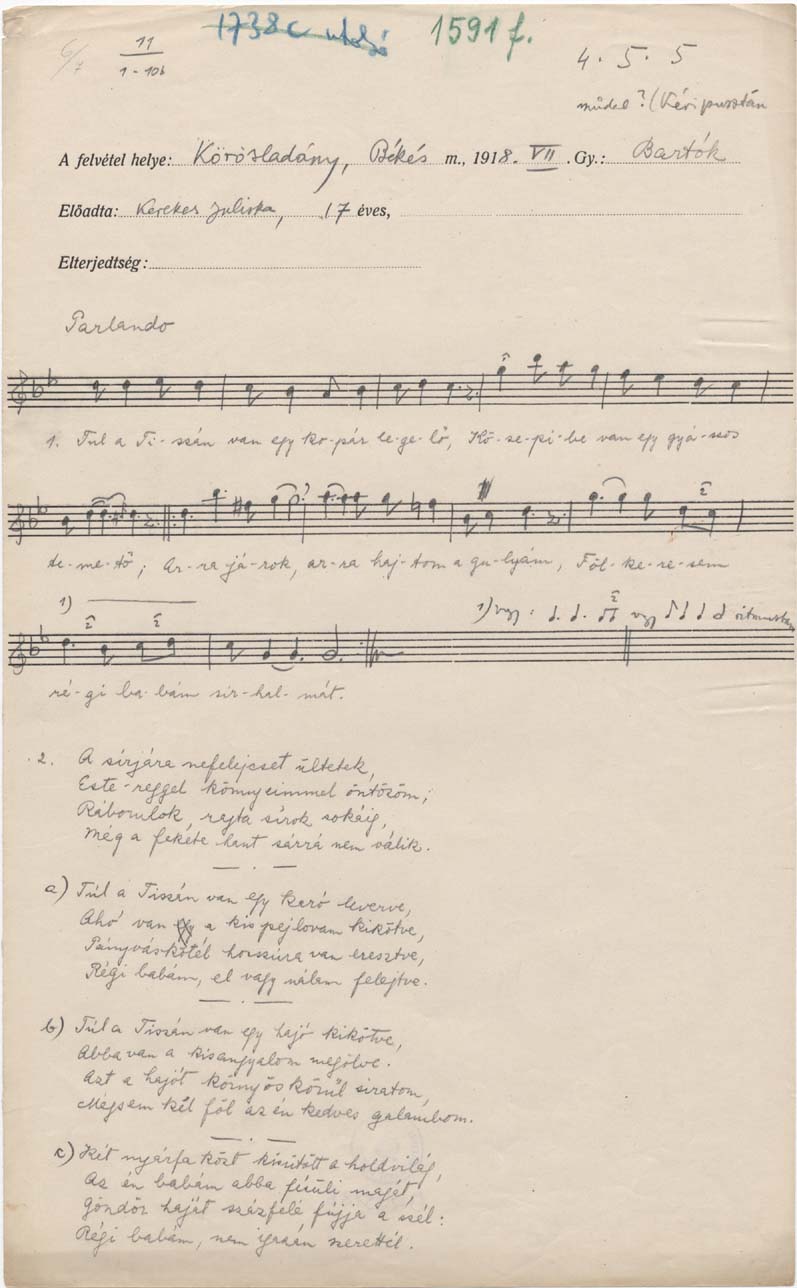 1738c utolsó 1591 f.
6/7 11
1-10b 4. 5. 5
műdal? (Kéri pusztán
A felvétel helye: Körösladány, Békés m., 1918. VII. Gy.: Bartók
Előadta: Kerekes Juliska, 17 éves,
Elterjedtség:
Parlando
1. Túl a Ti-szán van egy ko-pár le-ge-lő, Kö-ze-pi-be van egy gyá-szos
te-me-tő; Ar-ra já-rok, ar-ra haj-tom a gu-lyám, Föl-ke-re-sem
1) 1) vagy: vagy ritmusban
ré-gi ba-bám sír-hal-mát.
2. A sírjára nefelejcset ültetek,
Este-reggel könnyeimmel öntözöm;
Ráborulok, rajta sírok sokáig,
Még a fekete hant sárrá nem válik.
a) Túl a Tiszán van egy karó leverve,
Ahó van a kis pejlovam kikötve,
Pányváskötél hosszúra van eresztve,
Régi babám, el vagy nálam felejtve.
b) Túl a Tiszán van egy hajó kikötve,
Abba van a kisangyalom megölve.
Azt a hajót környöskörül siratom,
Mégsem kél föl az én kedves galambom.
c) Két nyárfa közt kisütött a holdvilág,
Az én babám abba fésüli magát,
Göndör haját százfelé fújja a szél:
Régi babám, nem igazán szerettél.